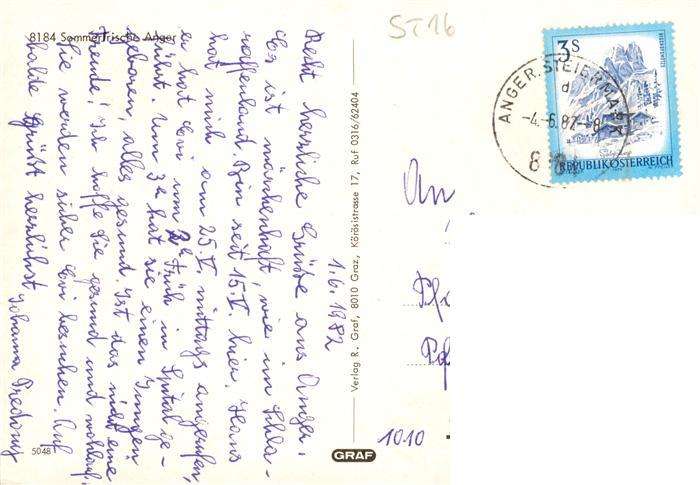 8184 Sommerfrische Anger
1.6.1982
Recht herzliche Grüße aus Anger.
Es ist märchenhaft, wie im Schla-
raffenland. Bin seit 15.V. hier. Hans
hat mich am 25.V. mittags angerufen,
er hat Evi um 2h Früh in Spital ge-
führt. Um 3h hat sie einen Jungen
geboren, alles gesund. Ist das nicht eine
Freude! Ich hoffe Sie gesund und wohlauf.
Sie werden sicher Evi besuchen. Auf
balde Grüßt herzlichst
Johanna
5048
Verlag R. Graf, 8010 Graz, Körösistrasse 17, Ruf 0316/62404
GRAF
ST16
3S
REPUBLIK ÖSTERREICH
ANGER, STEIERMARK
d
-4.-6.82-8
An
Pfe
1010